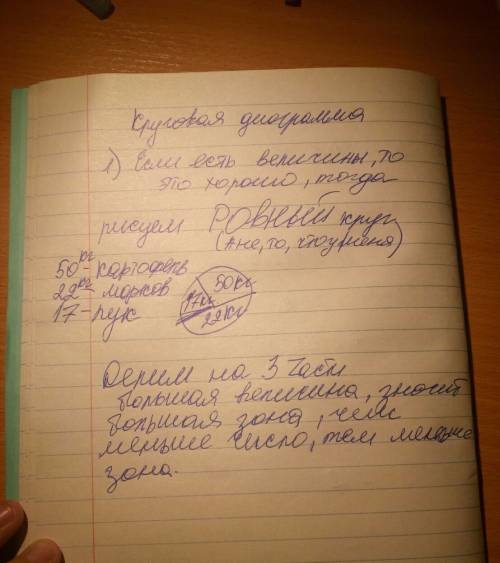 Круговая диограмма
1) Если есть величины, то
это хорошо, тогда
рисуем РОВНЫЙ круг
(А не, то, что у меня)
50кг - картофель
22кг - морков
17 - лук
50кг
17кг
22кг
Делим на 3 части
большая величина, значит
большая зона, чем
меньше число, тем меньше
зона.